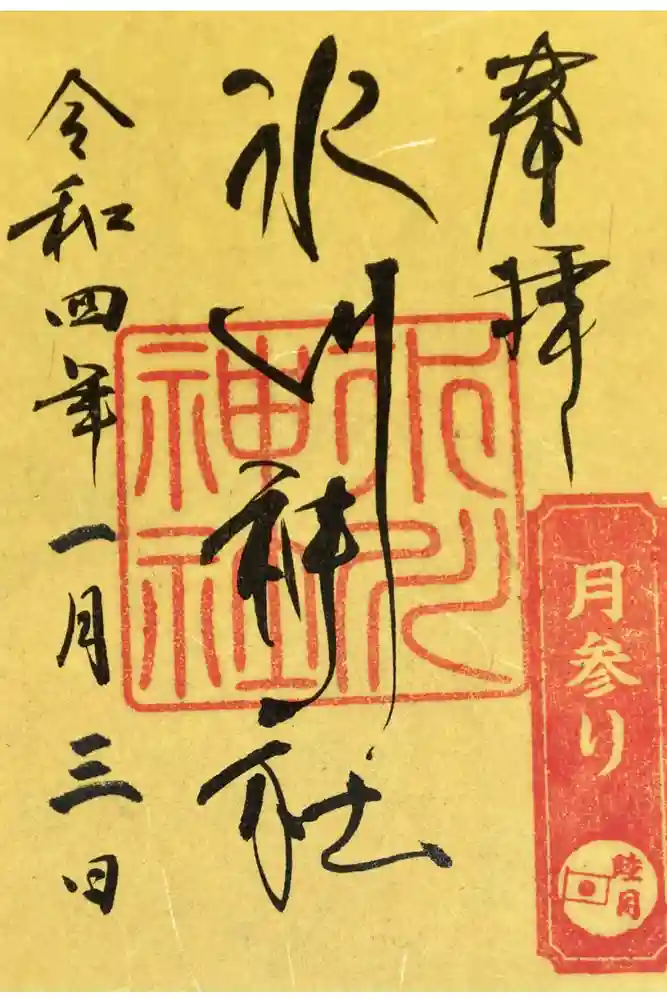 奉拝
月参り
睦月
氷川神社
氷川神社
令和四年一月三日